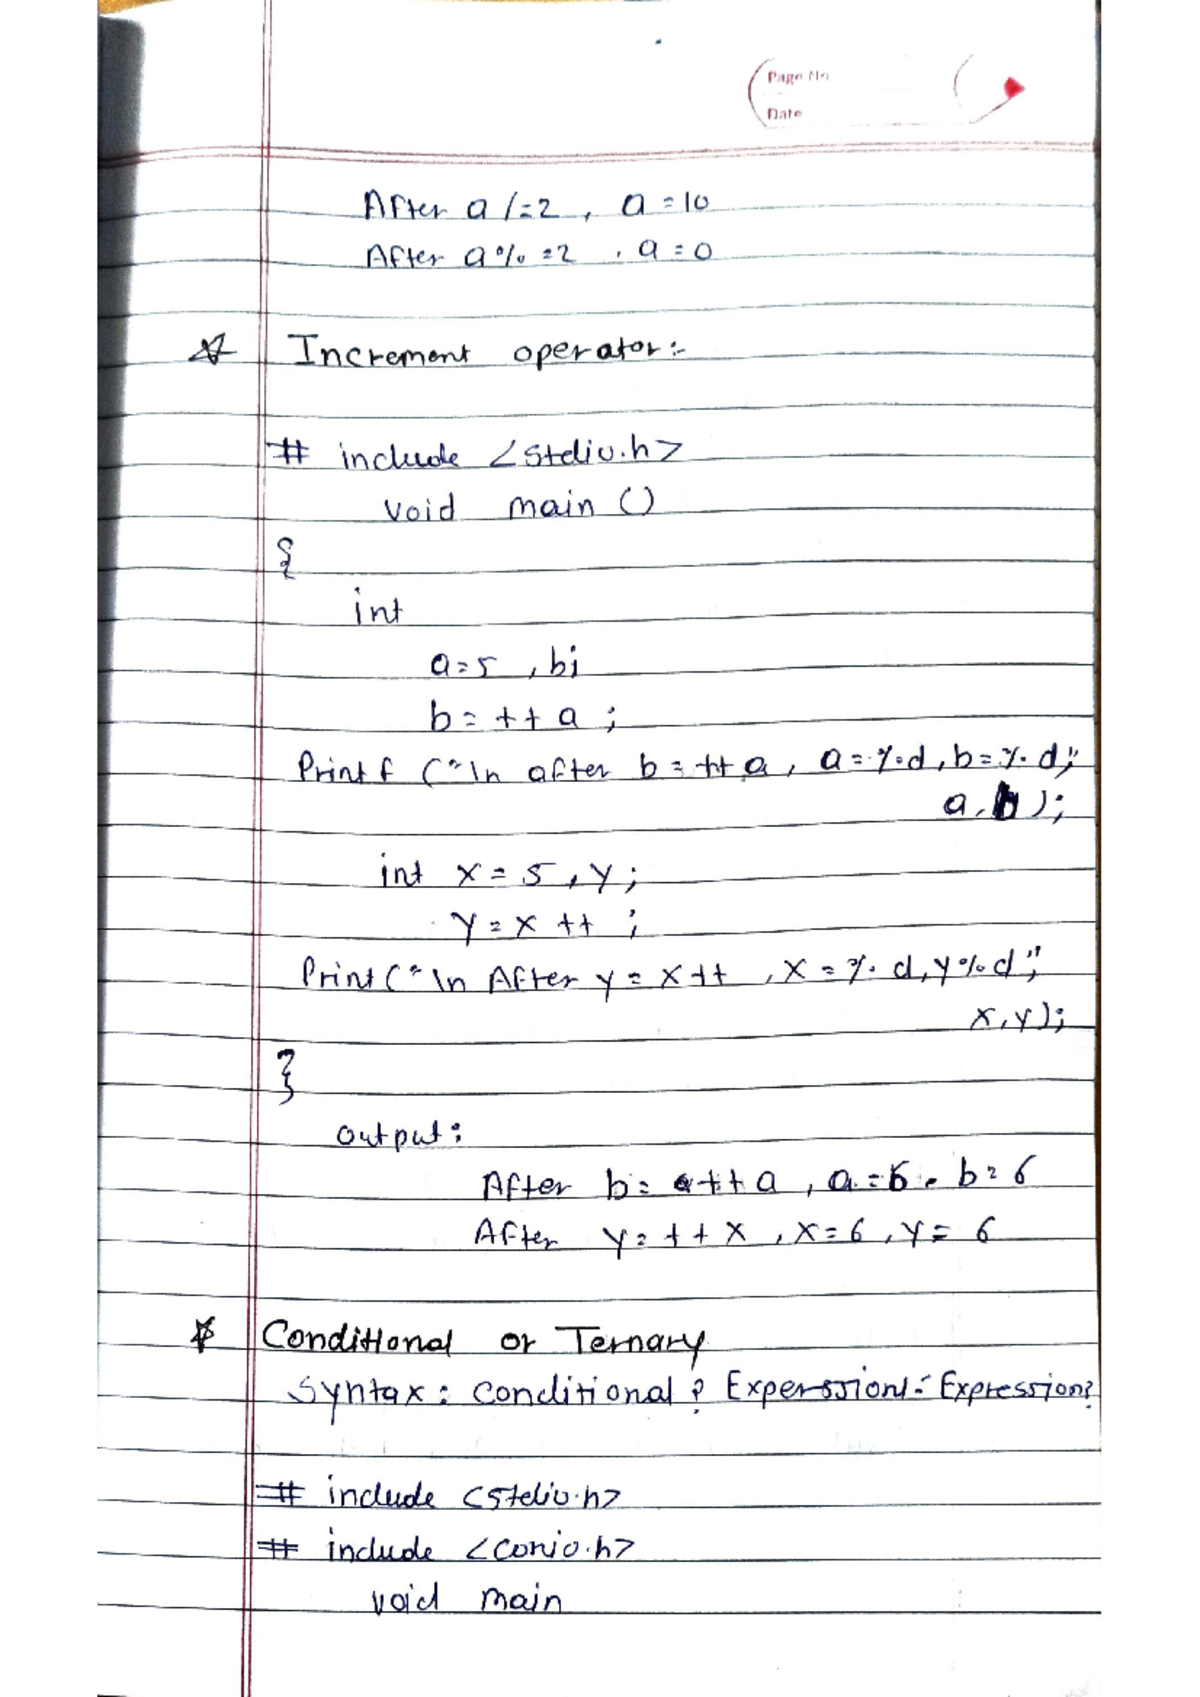 Page No
Date
After a /=2 , a =10
After a% =2 , a=0
Increment operator:-
# include <stdio.h>
void main ()
{
int
a=5 , b;
b= ++ a ;
Printf ("\n after b = ++ a , a=%d, b=%d",
a, b);
int x = 5 , y;
y = x ++ ;
Print ("\n After y = x++ , x = %d, y%d",
x,y);
}
output:
After b= ++ a , a=6, b=6
After y= ++ x , x=6, y= 6
Conditional or Ternary
Syntax: conditional ? Experssion1: Expression2
# include <stdio.h>
# include <conio.h>
void main